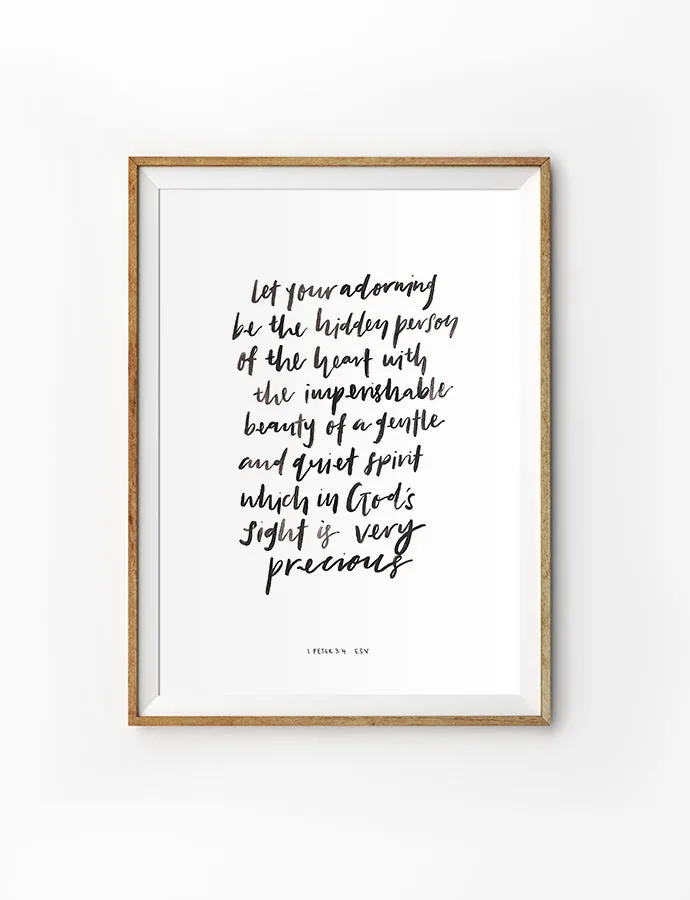 let your adorning
be the hidden person
of the heart with
the imperishable
beauty of a gentle
and quiet spirit
which in God's
sight is very
precious
1 PETER 3:4 ESV